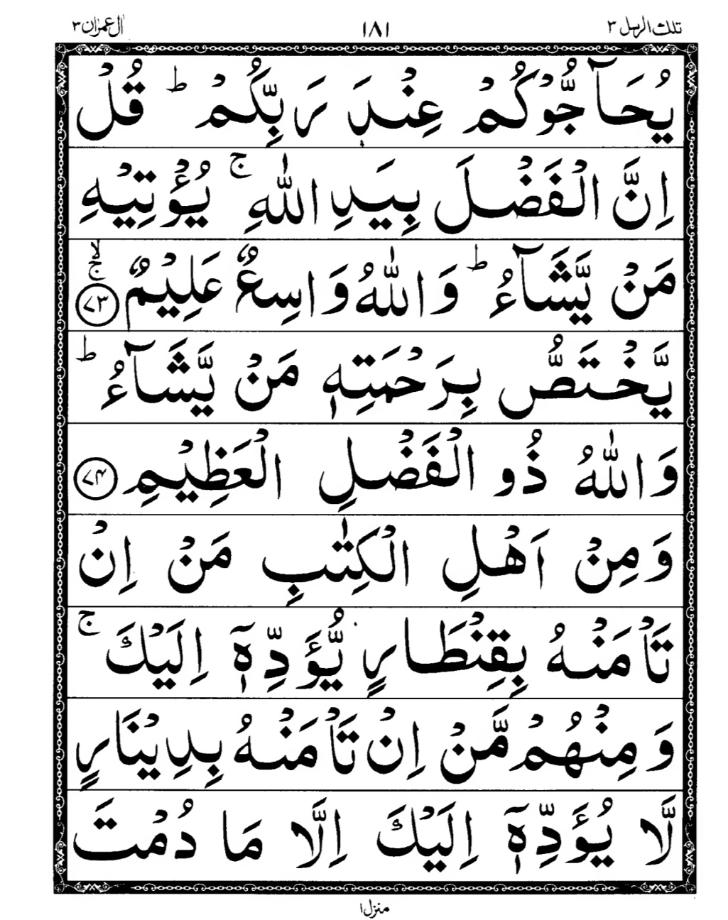 تلك الرسل ٣
١٨١
ال عمران ٣
يُحَآجُّوْكُمْ عِنْدَ رَبِّكُمْ ؕ قُلْ
اِنَّ الْفَضْلَ بِيَدِ اللّٰهِ ۚ يُؤْتِيْهِ
مَنْ يَّشَآءُ ؕ وَاللّٰهُ وَاسِعٌ عَلِيْمٌ ﴿٧٣﴾ ۚۙ
يَّخْتَصُّ بِرَحْمَتِهٖ مَنْ يَّشَآءُ ؕ
وَاللّٰهُ ذُو الْفَضْلِ الْعَظِيْمِ ﴿٧٤﴾
وَمِنْ اَهْلِ الْكِتٰبِ مَنْ اِنْ
تَاْمَنْهُ بِقِنْطَارٍ يُّؤَدِّهٖۤ اِلَيْكَ ۚ
وَمِنْهُمْ مَّنْ اِنْ تَاْمَنْهُ بِدِيْنَارٍ
لَّا يُؤَدِّهٖۤ اِلَيْكَ اِلَّا مَا دُمْتَ
منزل ١